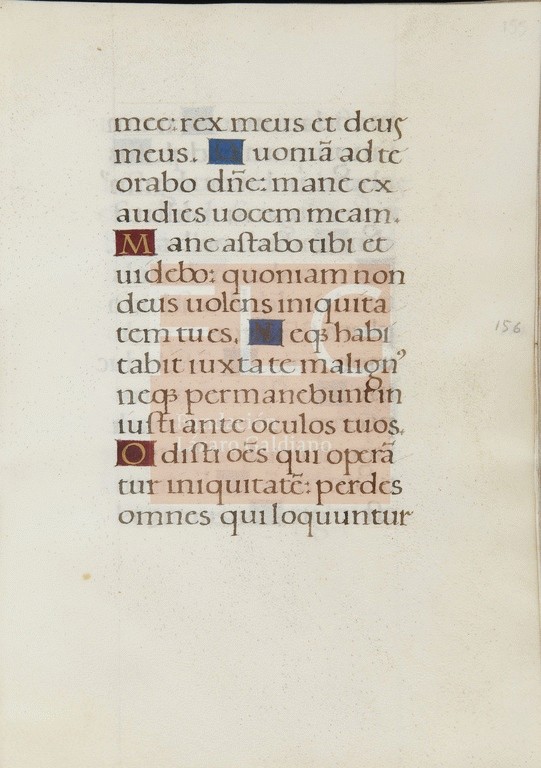 155
mee: rex meus et deus
meus. Quoniã ad te
orabo dñe: mane ex
audies uocem meam.
Mane astabo tibi et
uidebo: quoniam non
deus uolens iniquita
tem tu es. Neqꝫ habi
156
tabit iuxta te malignꝰ
neqꝫ permanebunt in
iusti ante oculos tuos.
Odisti oẽs qui operã
tur iniquitatẽ: perdes
omnes qui loquuntur
FLG
Fundación
Lázaro Galdiano